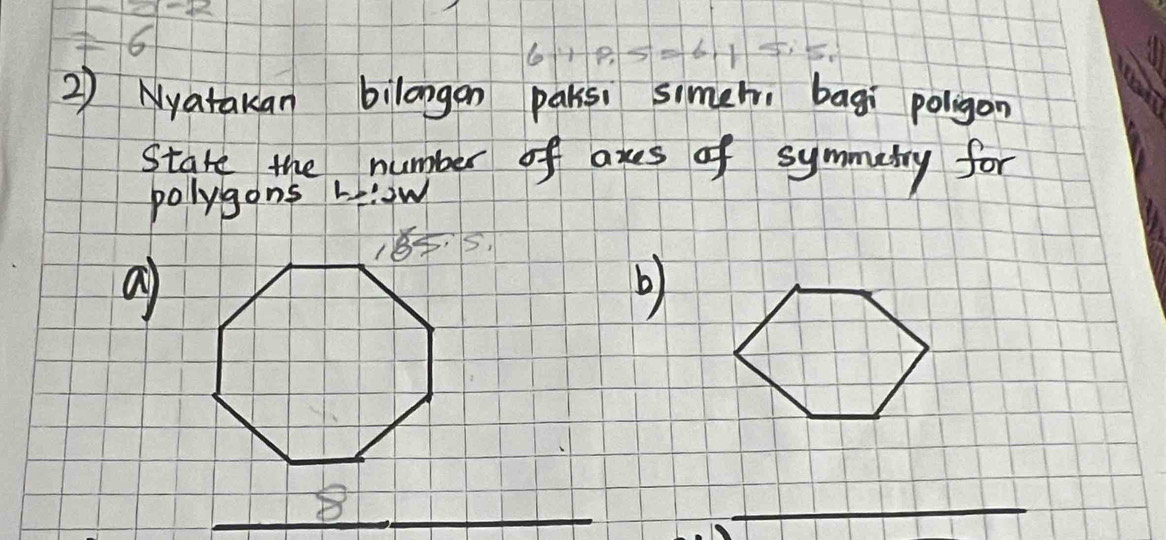 = 6
2) Nyatakan bilangan paksi simetri bagi poligon
State the number of axes of symmetry for
polygons below
a) b)
8